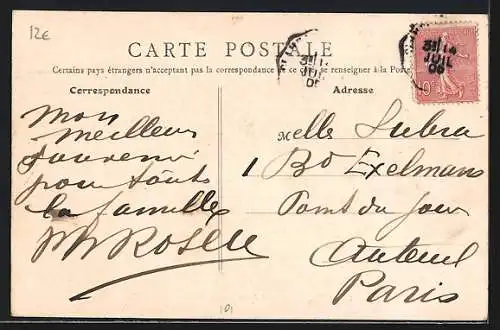 12€
CARTE POSTALE
Certains pays étrangers n'acceptant pas la correspondance à ce côté se renseigner à la Poste
Correspondance
Mon
meilleur
souvenir
pour touts
la familles
Adresse
Melle Lubra
1 Bd Exelmans
Point du Jour
Auteuil
Paris
3E 14
JUIL
06
3E 14
JUIL
06